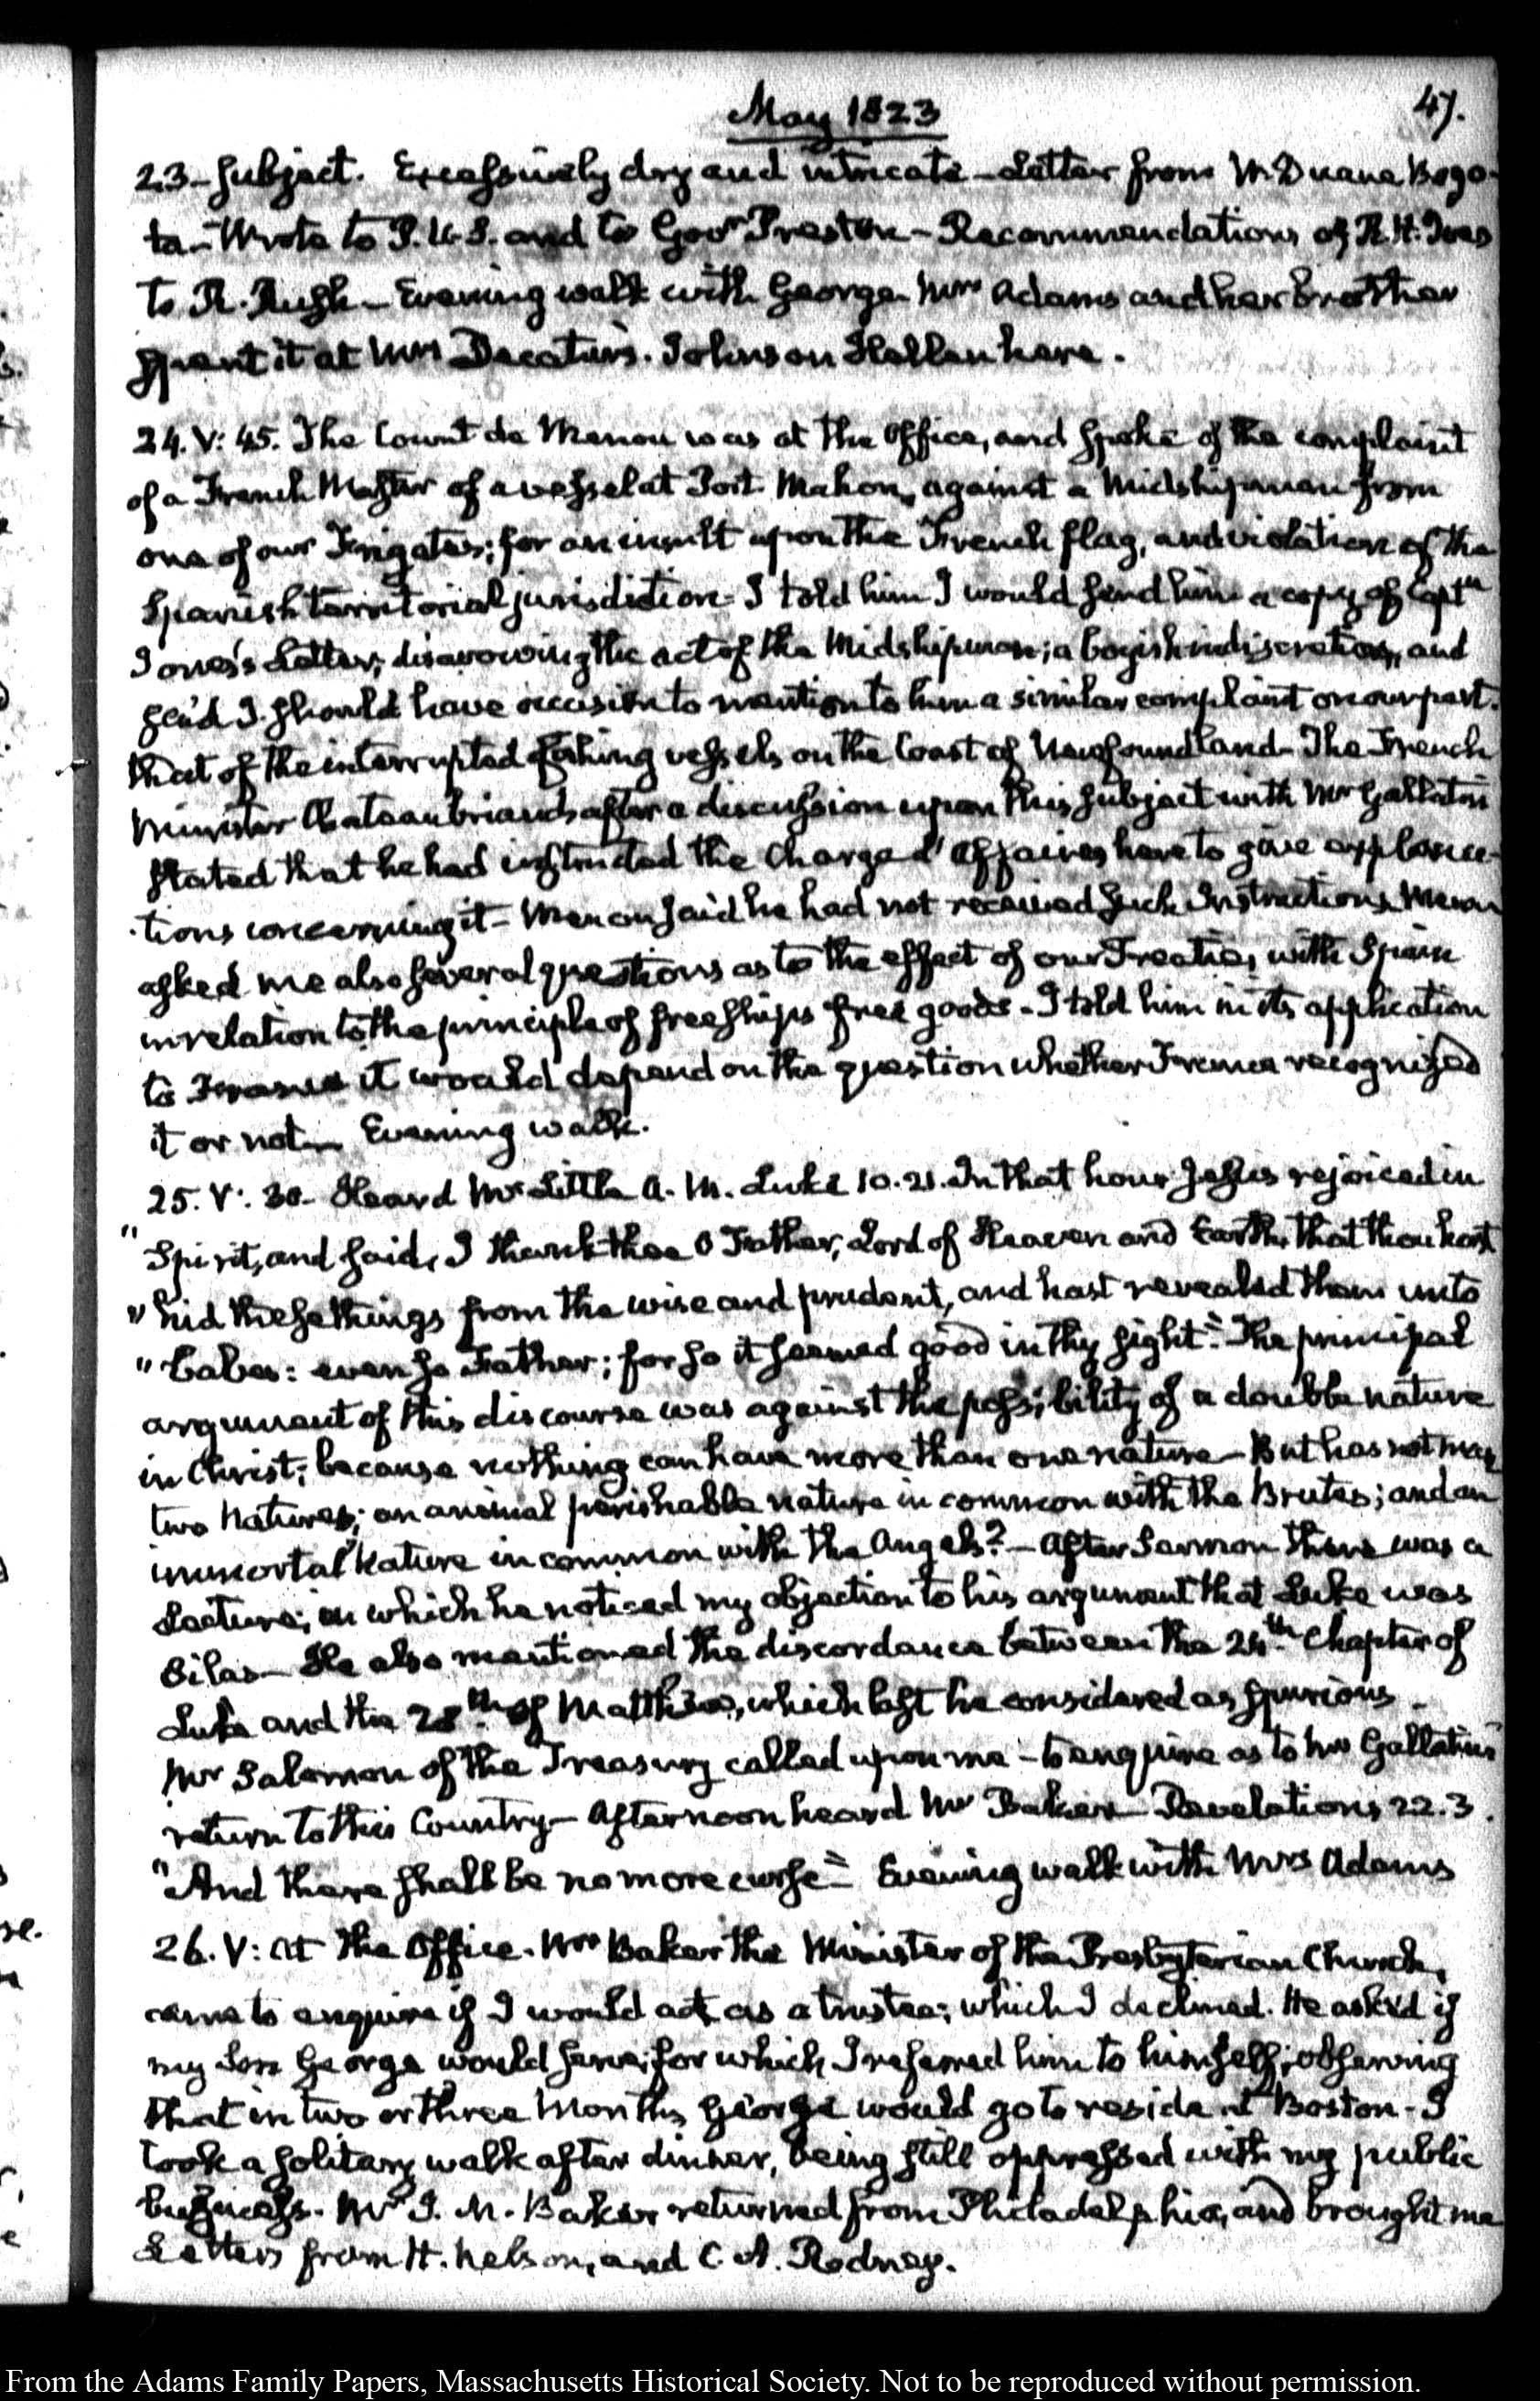 May 1823
47.
23 – subject. Excessively dry and intricate – Letter from W. Duane Bogo-
ta – Wrote to P.U.S. and to Govr Preston – Recommendations of R. H. Ives
to R. Rush – Evening walk with George. Mrs Adams and her brother
spent it at Mrs Decatur's. Johnson Hellen here.
24. V: 45. The Count de Menou was at the Office, and spoke of the complaint
of a French Master of a vessel at Port Mahon, against a Midshipman from
one of our Frigates; for an insult upon the French flag, and violation of the
Spanish territorial jurisdiction – I told him I would send him a copy of Captn
Jones's Letter; disavowing the act of the Midshipman; a boyish indiscretion, and
said I should have occasion to mention to him a similar complaint on our part.
that of the interrupted fishing vessels on the Coast of Newfoundland – The French
Minister Chateaubriand after a discussion upon this subject with Mr Gallatin
stated that he had instructed the Chargé d'Affaires here to give explana-
tions concerning it – Menou said he had not received such Instructions. Menou
asked me also several questions as to the effect of our Treaties with Spain
in relation to the principle of free ships free goods – I told him in its application
to France it would depend on the question whether France recognized
it or not – Evening walk.
25. V: 30 – Heard Mr Little A. M. Luke 10. 21. In that hour Jesus rejoiced in
" Spirit, and said, I thank thee O Father, Lord of Heaven and Earth, that thou hast
" hid these things from the wise and prudent, and hast revealed them unto
" babes: even so Father; for so it seemed good in thy sight" – The principal
argument of this discourse was against the possibility of a double nature
in Christ; because nothing can have more than one nature – But has not man
two Natures; an animal perishable nature in common with the Brutes; and an
immortal Nature in common with the Angels? – After Sermon there was a
Lecture; in which he noticed my objection to his argument that Luke was
Silas – He also mentioned the discordance between the 24th Chapter of
Luke and the 28th of Matthew, which last he considered as spurious –
Mr Salomon of the Treasury called upon me – to enquire as to Mr Gallatin's
return to this Country – Afternoon heard Mr Baker – Revelations 22. 3.
"And there shall be no more curse" – Evening walk with Mrs Adams
26. V: At the Office. Mr Baker the Minister of the Presbyterian Church,
came to enquire if I would act as a trustee; which I declined. He ask'd if
my Son George would serve; for which I referred him to himself; observing
that in two or three Months George would go to reside at Boston – I
took a solitary walk after dinner, being still oppressed with my public
business. Mr J. M. Baker returned from Philadelphia, and brought me
Letters from H. Nelson, and C. A. Rodney.
From the Adams Family Papers, Massachusetts Historical Society. Not to be reproduced without permission.